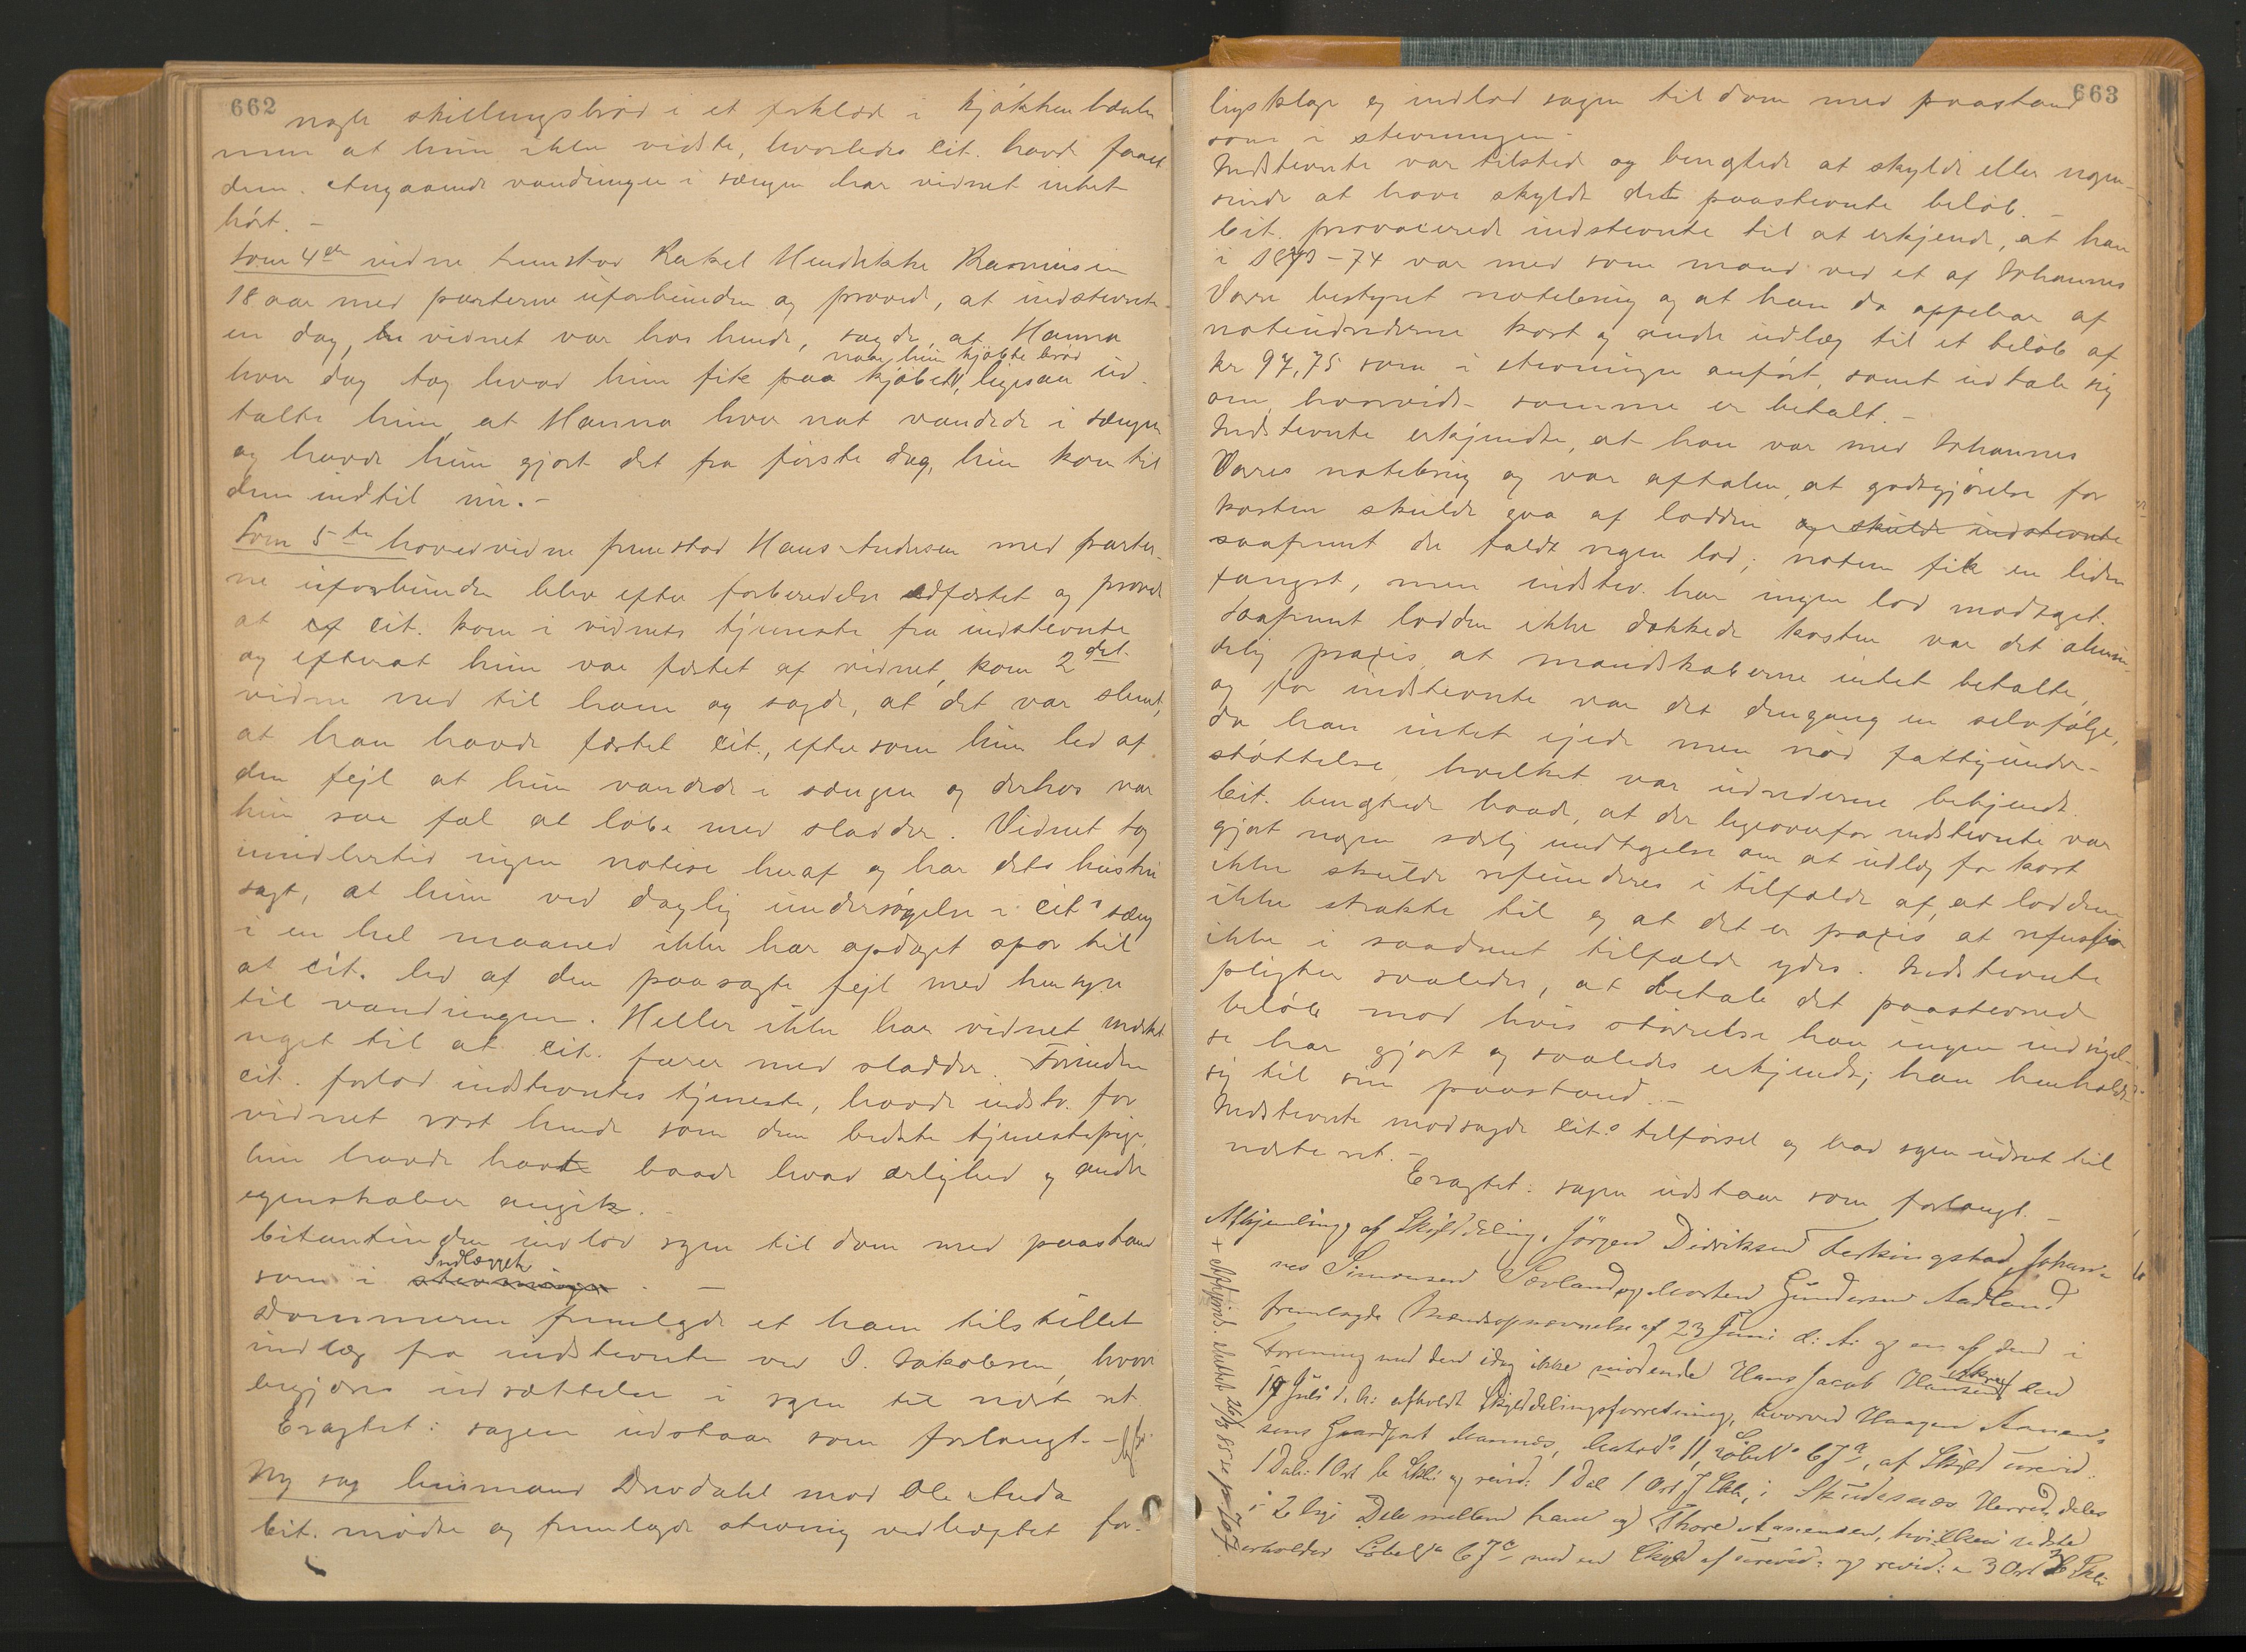 662
nogle skillingsbrød i et forklæde i kjøkkenbænken
men at hun ikke vidste, hvorledes cit. havde faaet
dem. Angaaende vandingen i sængen har vidnet intet
hørt. -
Som 4de vidne fremstod Rakel Hendrikke Rasmussen
18 aar med parterne uforbunden og provede, at indstevnte
en dag, vidnet var hos hende, sagde, at Hanna
hver dag tog hvad hun fik paa kjøbet, naar hun kjøbte brød ligesaa ud-
talte hun at Hanna hver nat vandede i sængen
og havde hun gjort det fra første dag, hun kom til
dem indtil nu. -
Som 5te hovedvidne fremstod Hans Andersen med parter-
ne uforbunden blev efter forberedelse edfæstet og provede
at cit. kom i vidnets tjeneste fra indstevnte
og efterat hun var fæstet af vidnet, kom 2det
vidne ned til ham og sagde, at det var slemt,
at han havde fæstet cit., eftersom hun led af
den fejl at hun vandede i sængen og derhos var
hun saa fæl at løbe med sladder. Vidnet tog
imidlertid ingen notice heraf og har dets hustru
sagt, at hun ved daglig undersøgelse i cits sæng
i en hel maaned ikke har opdaget spor til
at cit. led af den paasagte fejl med hensyn
til vandingen. Heller ikke har vidnet mærket
noget til at cit. farer med sladder. Forinden
cit. forlod indstevntes tjeneste, havde indstv. for
vidnet rost hende som den bedste tjenestepige,
hun havde havt baade hvad ærlighed og andre
egenskaber angik. -
Citantinden indlod sagen til dom med paastand
som i stevningen Indlægget. -
Dommeren fremlagde et ham tilstillet
indlæg fra indstevnte ved I. Jakobsen, hvori
begjæres udsættelse i sagen til næste ret
Eragtet: sagen udstaar som forlangt. -
Ny sag husmand Drevdahl mod Ole Anda
Cit. mødte og fremlagde stevning vedhæftet for-
663
ligsklage og indlod sagen til dom med paastand
som i stevningen. -
Indstevnte var tilstede og benegtede at skylde eller nogen-
sinde at have skyldt det paastevnte beløb. -
Cit. provocerede indstevnte til at erkjende, at han
i 1873-74 var med som mand ved et af Johannes
Vorre bestyret notebrug og at han da oppebar af
notens rederne kost og andre udlæg til et beløb af
kr 97,75 som i stevningen anført, samt udtale sig
om, hvorvidt samme er betalt. -
Indstevnte erkjendte, at han var med Johannes
Vorres notebrug og var aftalen, at godtgjørelse for
kosten skulde gaa af lodden og skulde indstevnte
saafremt der faldt nogen lod; noten fik en liden
fangst, men indstev. har ingen lod modtaget.
Saafremt lodden ikke dækkede kosten var det almin-
delig praxis, at mandskaberne intet betalte,
og for indstevnte var det dengang en selvfølge,
da han intet ejede men nød fattigunder-
støttelse, hvilket var rederne bekjendt.
Cit. benegtede baade, at der ligeoverfor indstevnte var
gjort nogen særlig undtagelse om at udlæg for kost
ikke skulde refunderes i tilfælde af, at lodden
ikke strakte til og at det er praxis at refusion
ikke i saadant tilfælde ydes. Indstevnte
pligter saaledes, at betale det paastevnede
beløb mod hvis størrelse han ingen indsigel-
se har gjort og saaledes erkjendt; han henholdt
sig til sin paastand. -
Indstevnte modsagde cits tilførsel og bad sagen udsat til
næste ret. -
Eragtet: sagen udstaar som forlangt. -
Afhjemling af Skylddeling. Jörgen Didriksen Ferkingstad, Johan-
nes Simonsen Sævland og Morten Gundersen Aadland
fremlagde Mændsopnævnelse af 23 Juni d: A: og en af dem i
Forening med den idag ikke mødende Hans Jacob Hansen Aakre den
17 Juli d. A: afholdt Skylddelingsforretning, hvorved Haagen Aanen-
sens Gaardpart Mannes, Matrno 11, Löbeno 67a, af Skyld urevid.
1 Dal: 1 Ort 6 Skl: og revid: 1 Dal 1 Ort 7 Skl, i Skudesnæs Herred, deles
i 2 lige Dele mellem ham og Thore Aanensen, hvilken sidste
erholder Löbeno 67c med en Skyld af urevid: og revid: a 3 Ort Skl:
+ Afhjeml. sluttet 26/8 85 se p. 707.